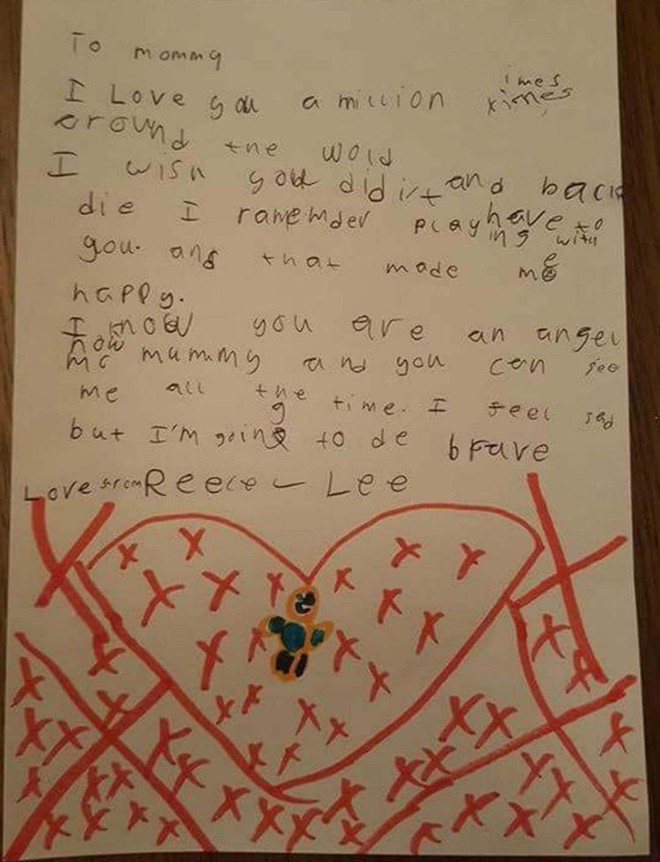 To mommy
I Love you a million times ximes
around the wold
I wish you did i't and back
die I ramemder play have to
you. and that made me ing with
happy.
I know you are an angel
now my mummy and you can see
me all the time. I feel sad
but I'm going to de brave
Love from Reece - Lee